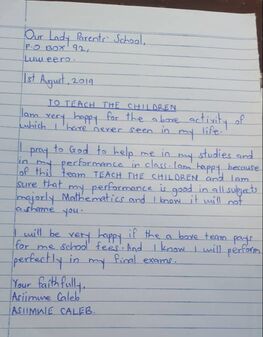 Our Lady Parents' School,
P.O BOX 92,
Luweero.
1st August, 2019
TO TEACH THE CHILDREN
Iam very happy for the above activity of
which I have never seen in my life.
I pray to God to help me in my studies and
in my performance in class. Iam happy because
of this team TEACH THE CHILDREN and Iam
sure that my performance is good in all subjects
majorly Mathematics and I know it will not
ashame you.
I will be very happy if the above team pays
for me school fees. And I know I will perform
perfectly in my final exams.
Your faithfully,
Asiimwe Caleb
ASIIMWE CALEB.